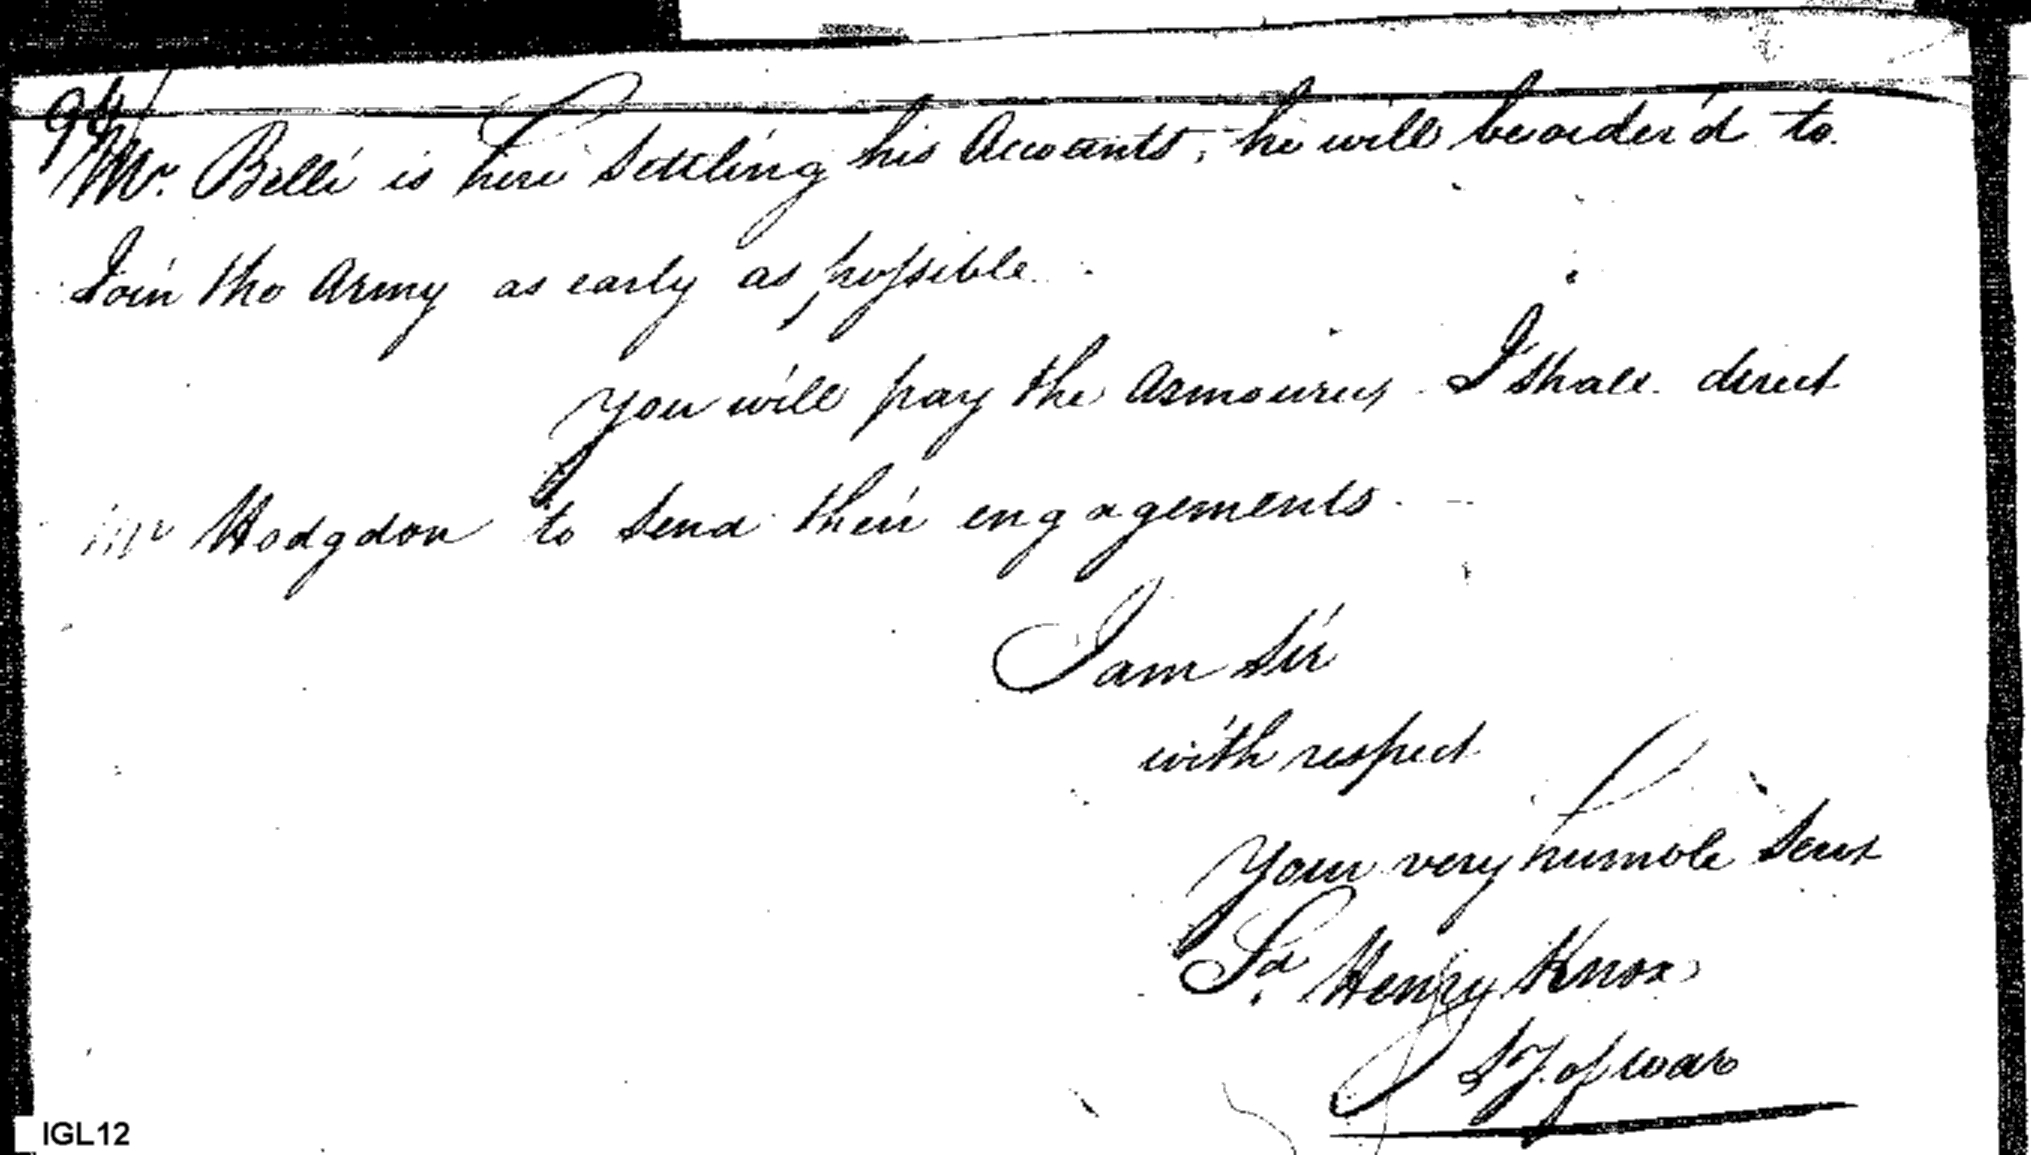 94
Mr. Belli is here Settling his Accounts, he will be order'd to
Join the Army as early as possible.
You will pay the Armourers I shall direct
Mr Hodgdon to send their engagements.
I am Sir
with respect
Your very humble Servt
Sd. Henry Knox
Sy. of War
IGL12